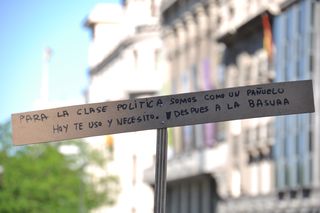 PARA LA CLASE POLÍTICA SOMOS COMO UN PAÑUELO
HOY TE USO Y NECESITO. Y DESPUES A LA BASURA